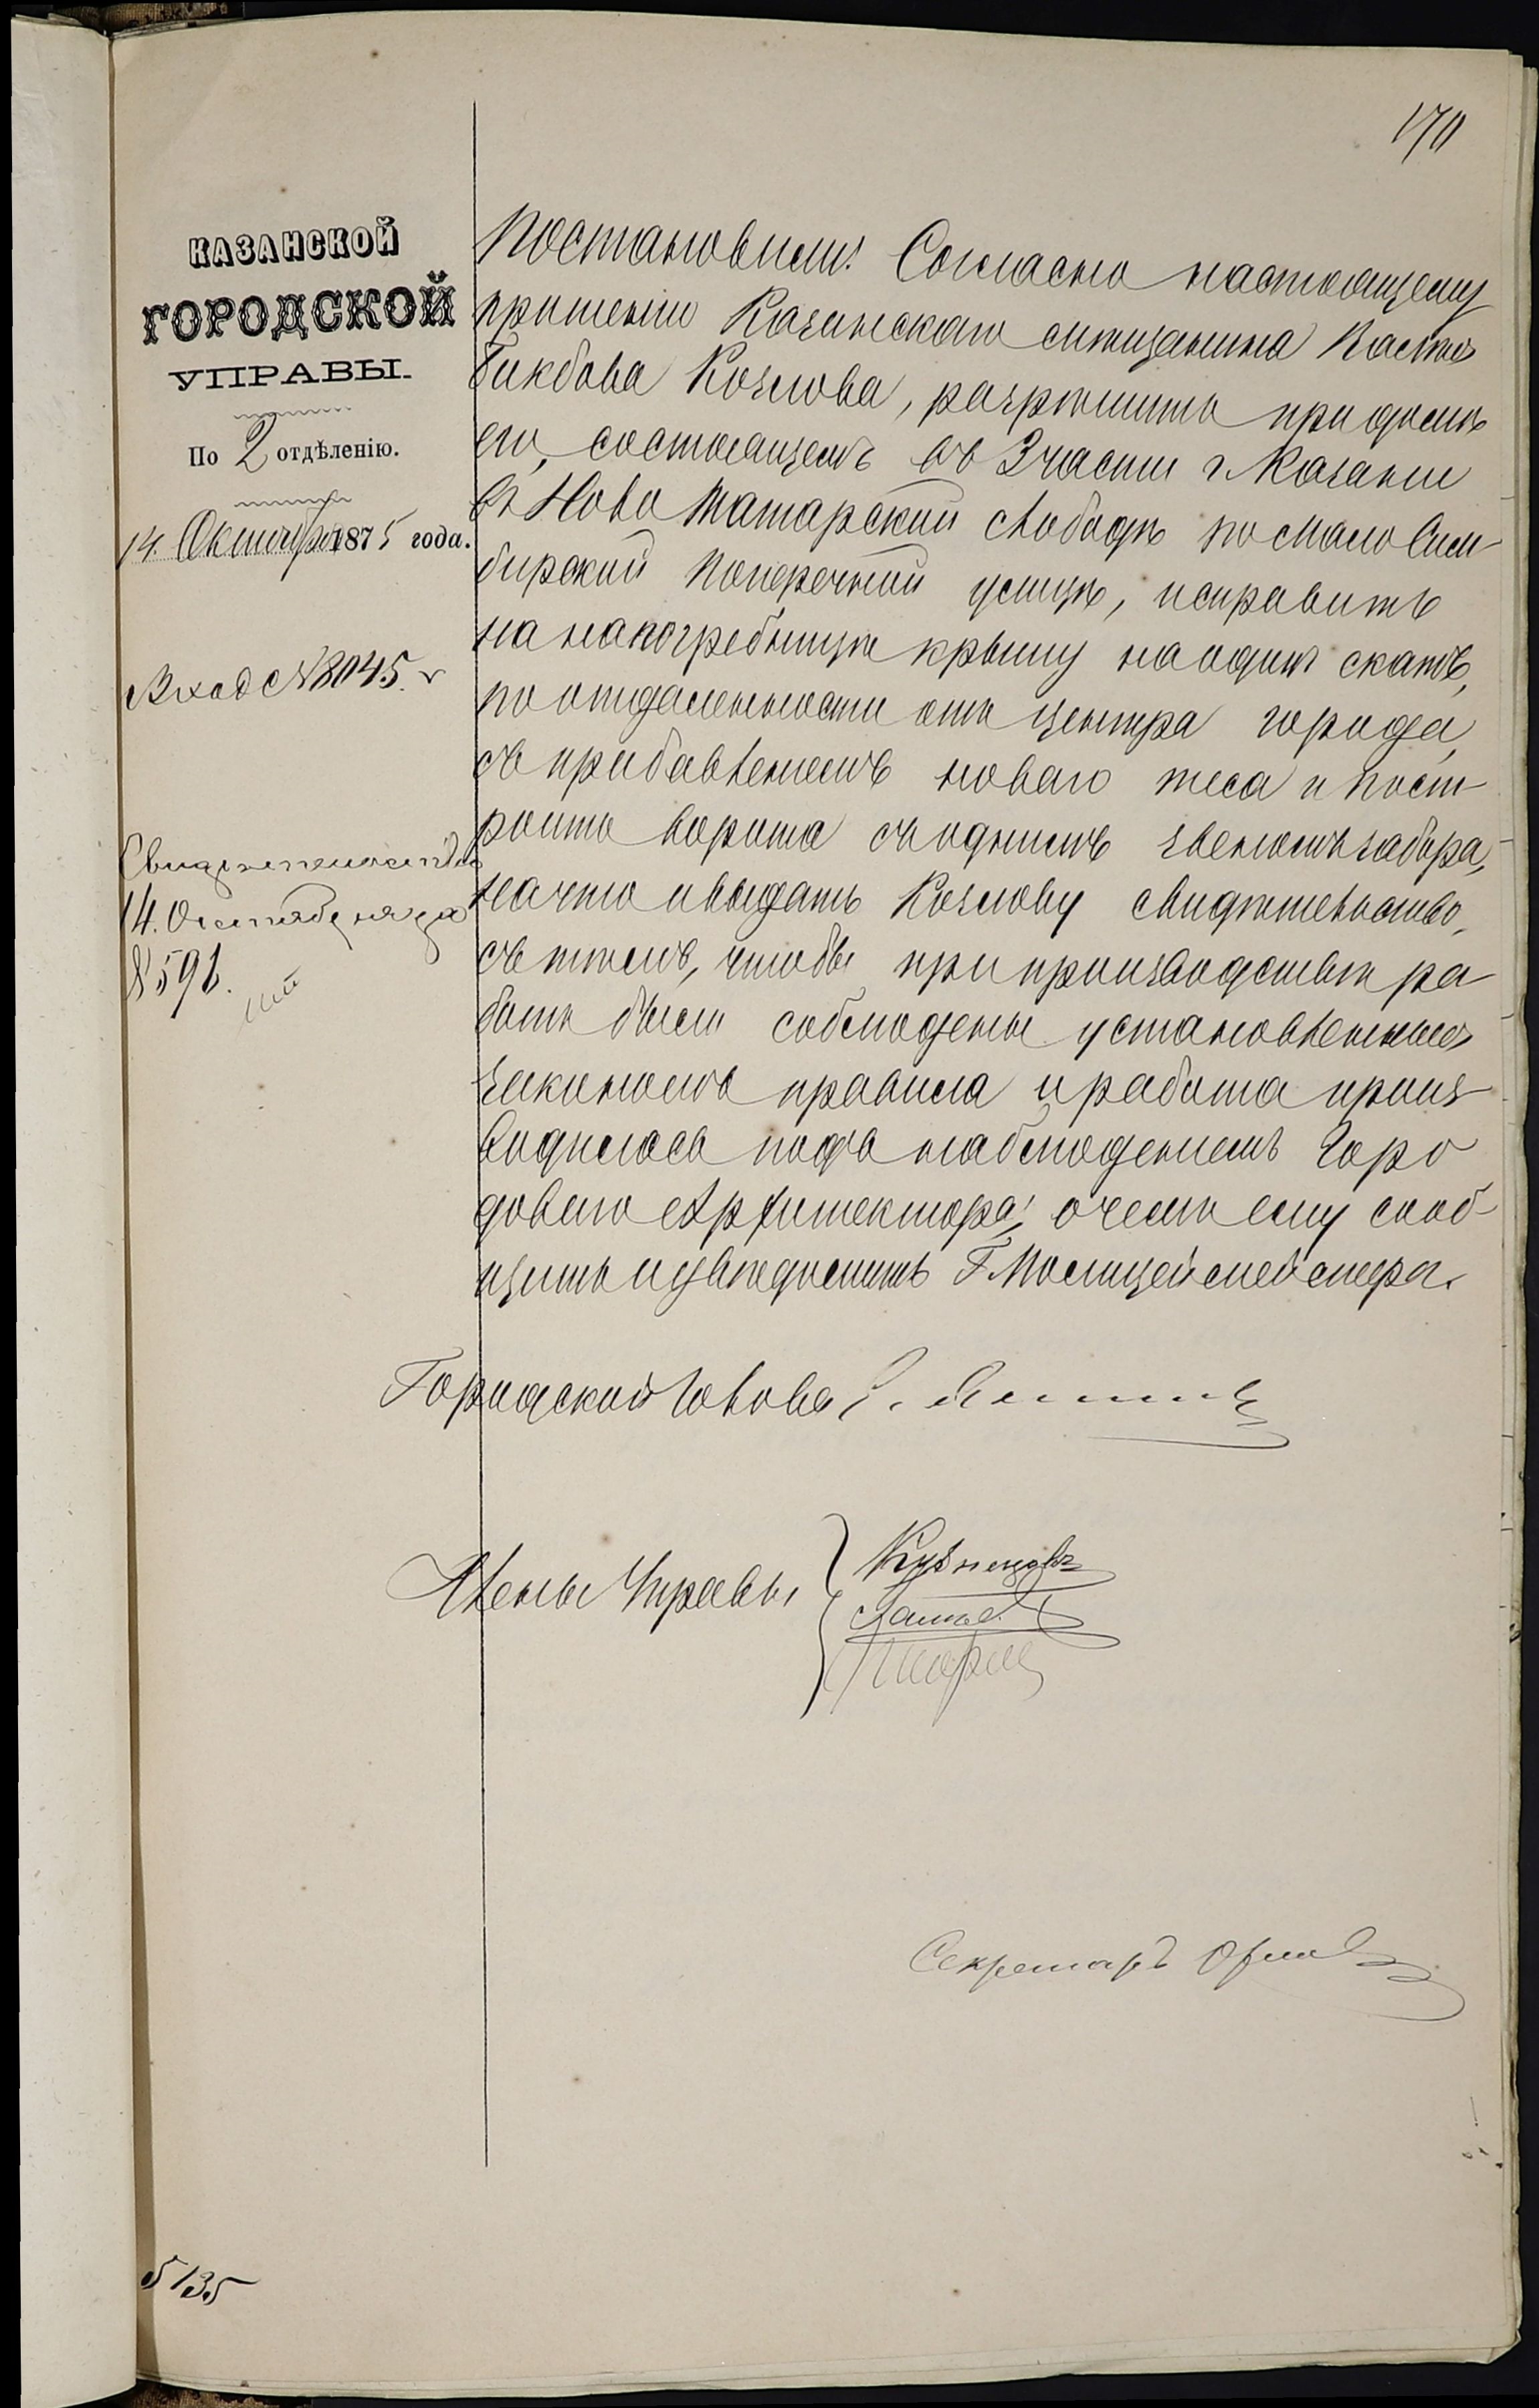 170
КАЗАНСКОЙ
ГОРОДСКОЙ
УПРАВЫ.
По 2 отдѣленію.
14. Октября 1875 года.
Вход № 8045.
Свидѣтельство
14. Октября за
№ 591.
Постановили: Согласно настоящему
прошенію Казанскаго мѣщанина
Бикбова Козлова, разрѣшить при домѣ
его, состоящемъ въ 3 части г. Казани
въ Ново Татарской слободѣ по Мало Сим-
бирской поперечной улицѣ, исправить
на напогребницѣ крышу на одинъ скатъ,
по отдаленности отъ центра города,
съ прибавленіемъ новаго теса и пост-
роить ворота съ однимъ звеномъ забора,
на что и выдать Козлову свидѣтельство,
съ тѣмъ, чтобы при производствѣ ра-
ботъ были соблюдены установленныя
закономъ правила и работа произ-
водилась подъ наблюденіемъ Горо
доваго Архитектора; о чемъ ему сооб-
щить и увѣдомить Г. Полицеймейстера.
Городской Голова
Члены Управы
Кузнецовъ
Секретарь Орлов
5135